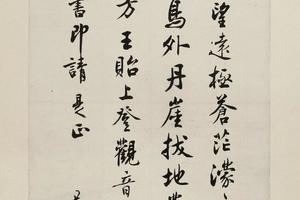 望遠極蒼茫濛
鳥外丹崖拔地
方王貽上登觀音
書即請是正